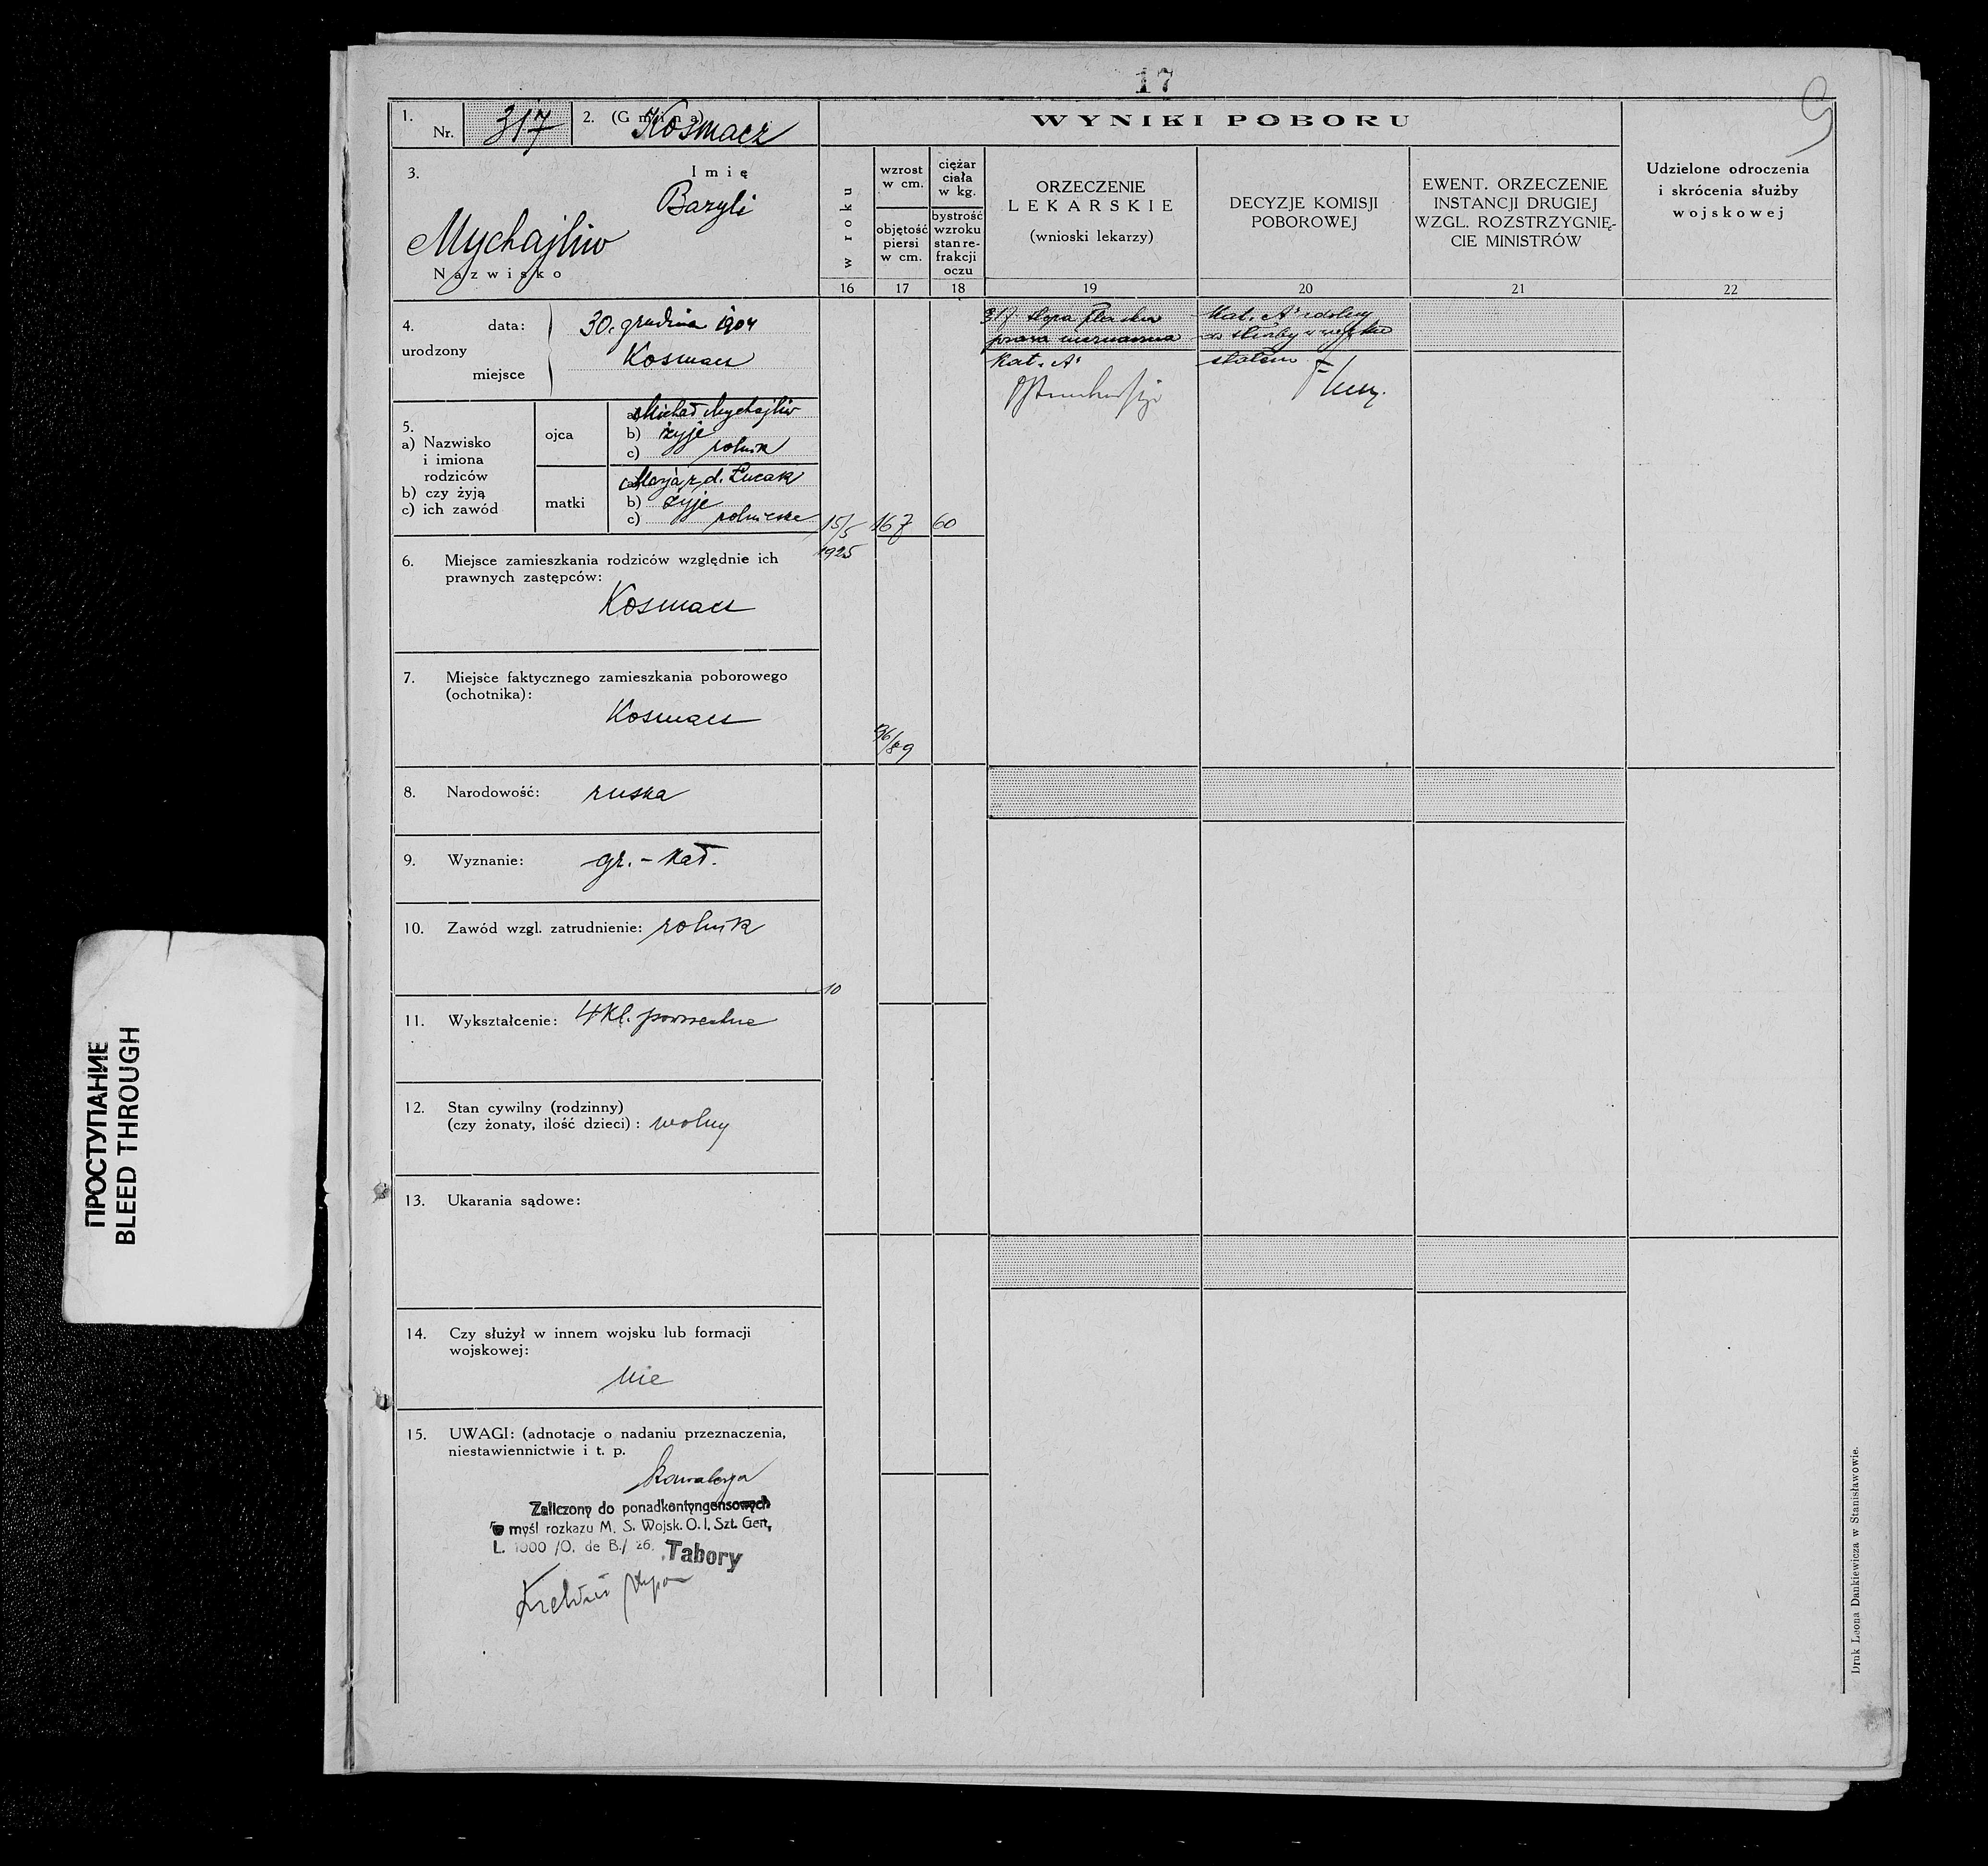 17
9
1. Nr. 317
2. (Gmina) Kosmacz
WYNIKI POBORU
3. Imię
Bazyli
Mychajliw
Nazwisko
w roku
wzrost
w cm.
objętość
piersi
w cm.
ciężar
ciała
w kg.
bystrość
wzroku
stan re-
frakcji
oczu
ORZECZENIE
LEKARSKIE
(wnioski lekarzy)
DECYZJE KOMISJI
POBOROWEJ
EWENT. ORZECZENIE
INSTANCJI DRUGIEJ
WZGL. ROZSTRZYGNIĘ-
CIE MINISTRÓW
Udzielone odroczenia
i skrócenia służby
wojskowej
16 17 18 19 20 21 22
4. data: 30. grudnia 1904
urodzony
Kosmacz
miejsce
31f stopa płaska
prawa nieznaczna
Kat. A
Kat. A zdolny
do służby w wojsku
stałem
5.
a) Nazwisko
i imiona
rodziców
b) czy żyją
c) ich zawód
ojca
a) Michał Mychajliw
b) żyje
c) rolnik
matki
a) Marja z d. Łucak
b) żyje
c) rolniczka
15/5
1925
167
60
6. Miejsce zamieszkania rodziców względnie ich
prawnych zastępców:
Kosmacz
7. Miejsce faktycznego zamieszkania poborowego
(ochotnika):
Kosmacz
/89
8. Narodowość: ruska
9. Wyznanie: gr.-kat.
10. Zawód wzgl. zatrudnienie: rolnik
10
11. Wykształcenie: 4 kl. powszechne
12. Stan cywilny (rodzinny)
(czy żonaty, ilość dzieci): wolny
13. Ukarania sądowe:
14. Czy służył w innem wojsku lub formacji
wojskowej:
nie
15. UWAGI: (adnotacje o nadaniu przeznaczenia,
niestawiennictwie i t. p.
Kawalerja
Zaliczony do ponadkontyngensowych
w myśl rozkazu M. S. Wojsk. O. I. Szt. Gen.
L. 1000 /O. de B./ 26.
Tabory
Druk Leona Dankiewicza w Stanisławowie.
ПРОСТУПАНИЕ
BLEED THROUGH